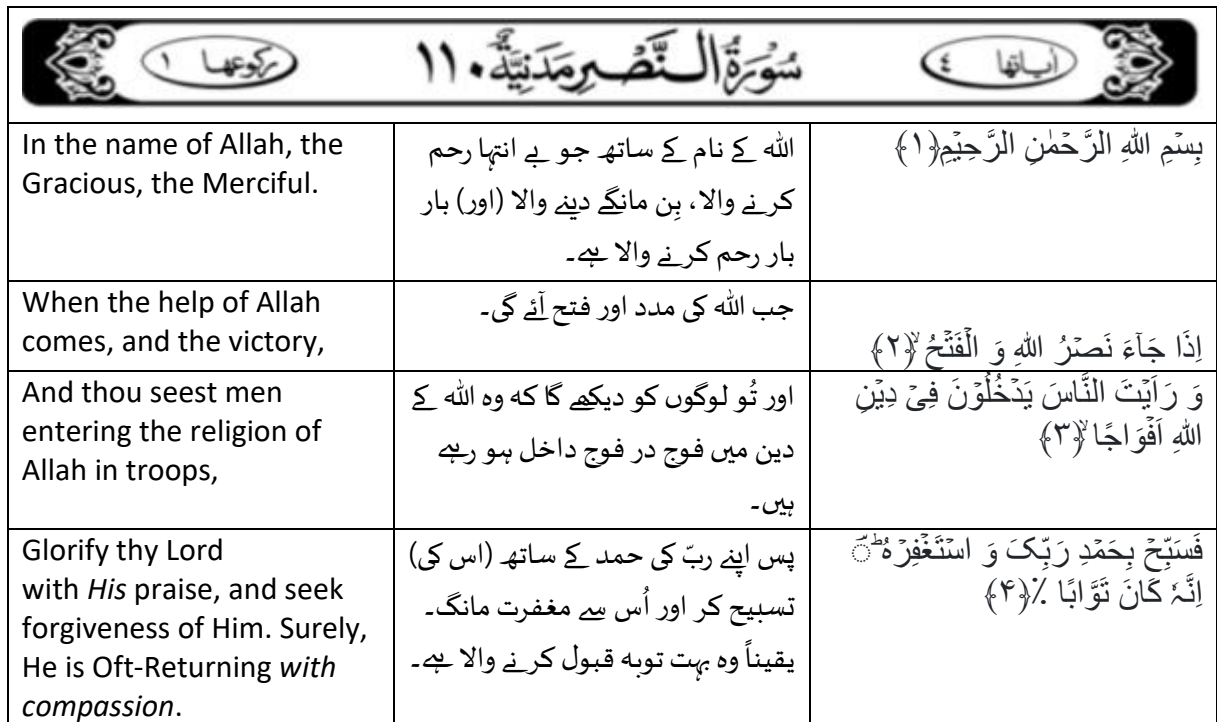 اٰیاتها ٤ سُوْرَةُ النَّصْرِ مَدَنِيَّةٌ ١١٠ رکوعها ١
In the name of Allah, the
Gracious, the Merciful.
اللہ کے نام کے ساتھ جو بے انتہا رحم
کرنے والا، بِن مانگے دینے والا (اور) بار
بار رحم کرنے والا ہے۔
بِسۡمِ اللّٰہِ الرَّحۡمٰنِ الرَّحِیۡمِ﴿۱﴾
When the help of Allah
comes, and the victory,
جب اللہ کی مدد اور فتح آئے گی۔
اِذَا جَآءَ نَصۡرُ اللّٰہِ وَ الۡفَتۡحُ ۙ﴿۲﴾
And thou seest men
entering the religion of
Allah in troops,
اور تُو لوگوں کو دیکھے گا کہ وہ اللہ کے
دین میں فوج در فوج داخل ہو رہے
ہیں۔
وَ رَاَیۡتَ النَّاسَ یَدۡخُلُوۡنَ فِیۡ دِیۡنِ
اللّٰہِ اَفۡوَاجًا ۙ﴿۳﴾
Glorify thy Lord
with His praise, and seek
forgiveness of Him. Surely,
He is Oft-Returning with
compassion.
پس اپنے ربّ کی حمد کے ساتھ (اس کی)
تسبیح کر اور اُس سے مغفرت مانگ۔
یقیناً وہ بہت توبہ قبول کرنے والا ہے۔
فَسَبِّحۡ بِحَمۡدِ رَبِّکَ وَ اسۡتَغۡفِرۡہُ ؕؔ
اِنَّہٗ کَانَ تَوَّابًا ٪﴿۴﴾